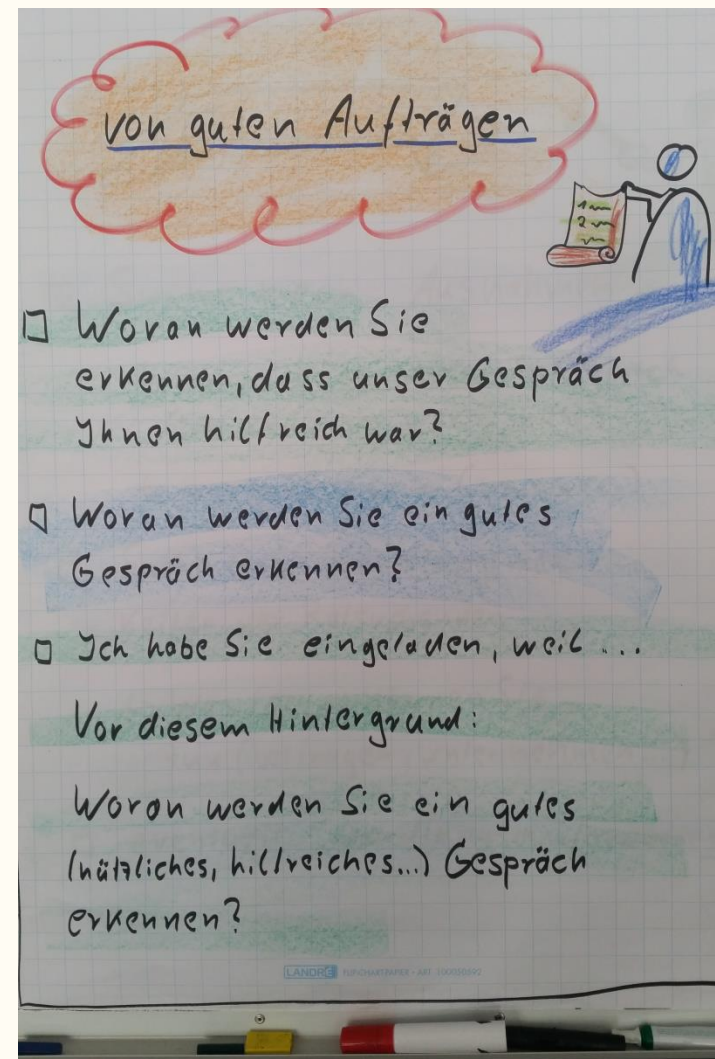 von guten Aufträgen
1
2
Woran werden Sie
erkennen, dass unser Gespräch
Ihnen hilfreich war?
Woran werden Sie ein gutes
Gespräch erkennen?
Ich habe Sie eingeladen, weil ...
Vor diesem Hintergrund:
Woran werden Sie ein gutes
(nützliches, hilfreiches...) Gespräch
erkennen?
LANDRÉ FLIPCHARTPAPIER • ART.